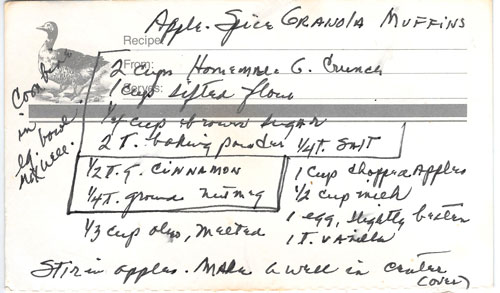 Apple-Spice GRANOLA MUFFINS
Recipe:
From:
Serves:
2 cups Homemade G. Crunch
1 cup sifted flour
1/4 cup brown sugar
2 T. baking powder 1/4 t. Salt
Combine
in
lg. bowl
mix well.
1/2 T. G. CINNAMON
1/4 t. ground nutmeg
1/3 cup oleo, melted
1 cup chopped Apples
1/2 cup milk
1 egg, slightly beaten
1 T. vanilla
Stir in apples. Make a well in center
(over)